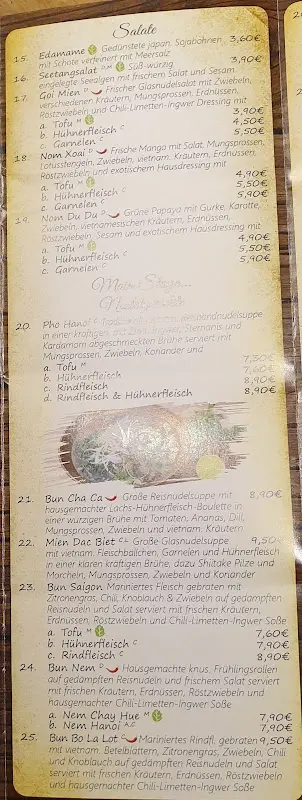 Salate
15. Edamame Gedünstete japan. Sojabohnen 3,60€
mit Schote verfeinert mit Meersalz
16. Seetangsalat D,M Süß-würzig 3,90€
eingelegte Seealgen mit frischem Salat und Sesam
17. Goi Mien D Frischer Glasnudelsalat mit Zwiebeln,
verschiedenen Kräutern, Mungsprossen, Erdnüssen,
Röstzwiebeln und Chili-Limetten-Ingwer Dressing mit
a. Tofu M 3,90€
b. Hühnerfleisch C 4,50€
c. Garnelen C 5,50€
18. Nom Xoai D Frische Mango mit Salat, Mungsprossen,
Lotusstengeln, Zwiebeln, vietnam. Kräutern, Erdnüssen,
Röstzwiebeln und exotischem Hausdressing mit
a. Tofu M 4,90€
b. Hühnerfleisch C 5,50€
c. Garnelen C 5,90€
19. Nom Du Du D Grüne Papaya mit Gurke, Karotte,
Zwiebeln, vietnamesischen Kräutern, Erdnüssen,
Röstzwiebeln, Sesam und exotischem Hausdressing mit
a. Tofu M 4,90€
b. Hühnerfleisch C 5,50€
c. Garnelen C 5,90€
20. Pho Hanoi Reisbandnudelsuppe
in einer kräftigen, mit Zimt, Ingwer, Sternanis und
Kardamom abgeschmeckten Brühe serviert mit
Mungsprossen, Zwiebeln, Koriander und
a. Tofu M 7,50€
b. Hühnerfleisch 7,60€
c. Rindfleisch 8,90€
d. Rindfleisch & Hühnerfleisch 8,90€
21. Bun Cha Ca Große Reisnudelsuppe mit 8,90€
hausgemachter Lachs-Hühnerfleisch-Boulette in
einer würzigen Brühe mit Tomaten, Ananas, Dill,
Mungsprossen, Zwiebeln und vietnam. Kräutern
22. Mien Dac Biet C,L Große Glasnudelsuppe 9,50€
mit vietnam. Fleischbällchen, Garnelen und Hühnerfleisch
in einer klaren kräftigen Brühe, dazu Shiitake Pilze und
Morcheln, Mungsprossen, Zwiebeln und Koriander
23. Bun Saigon Mariniertes Fleisch gebraten mit
Zitronengras, Chili, Knoblauch & Zwiebeln auf gedämpften
Reisnudeln und Salat serviert mit frischen Kräutern,
Erdnüssen, Röstzwiebeln und Chili-Limetten-Ingwer Soße
a. Tofu M 7,60€
b. Hühnerfleisch C 7,90€
c. Rindfleisch C 8,90€
24. Bun Nem D Hausgemachte knus. Frühlingsrollen
auf gedämpften Reisnudeln und frischem Salat serviert
mit frischen Kräutern, Erdnüssen, Röstzwiebeln und
hausgemachter Chili-Limetten-Ingwer Soße
a. Nem Chay Hue M 7,90€
b. Nem Hanoi A,C 7,90€
25. Bun Bo La Lot C Mariniertes Rindfl. gebraten 9,50€
mit vietnam. Betelblättern, Zitronengras, Zwiebeln, Chili
und Knoblauch auf gedämpften Reisnudeln und Salat
serviert mit frischen Kräutern, Erdnüssen, Röstzwiebeln
und hausgemachter Chili-Limetten-Ingwer Soße